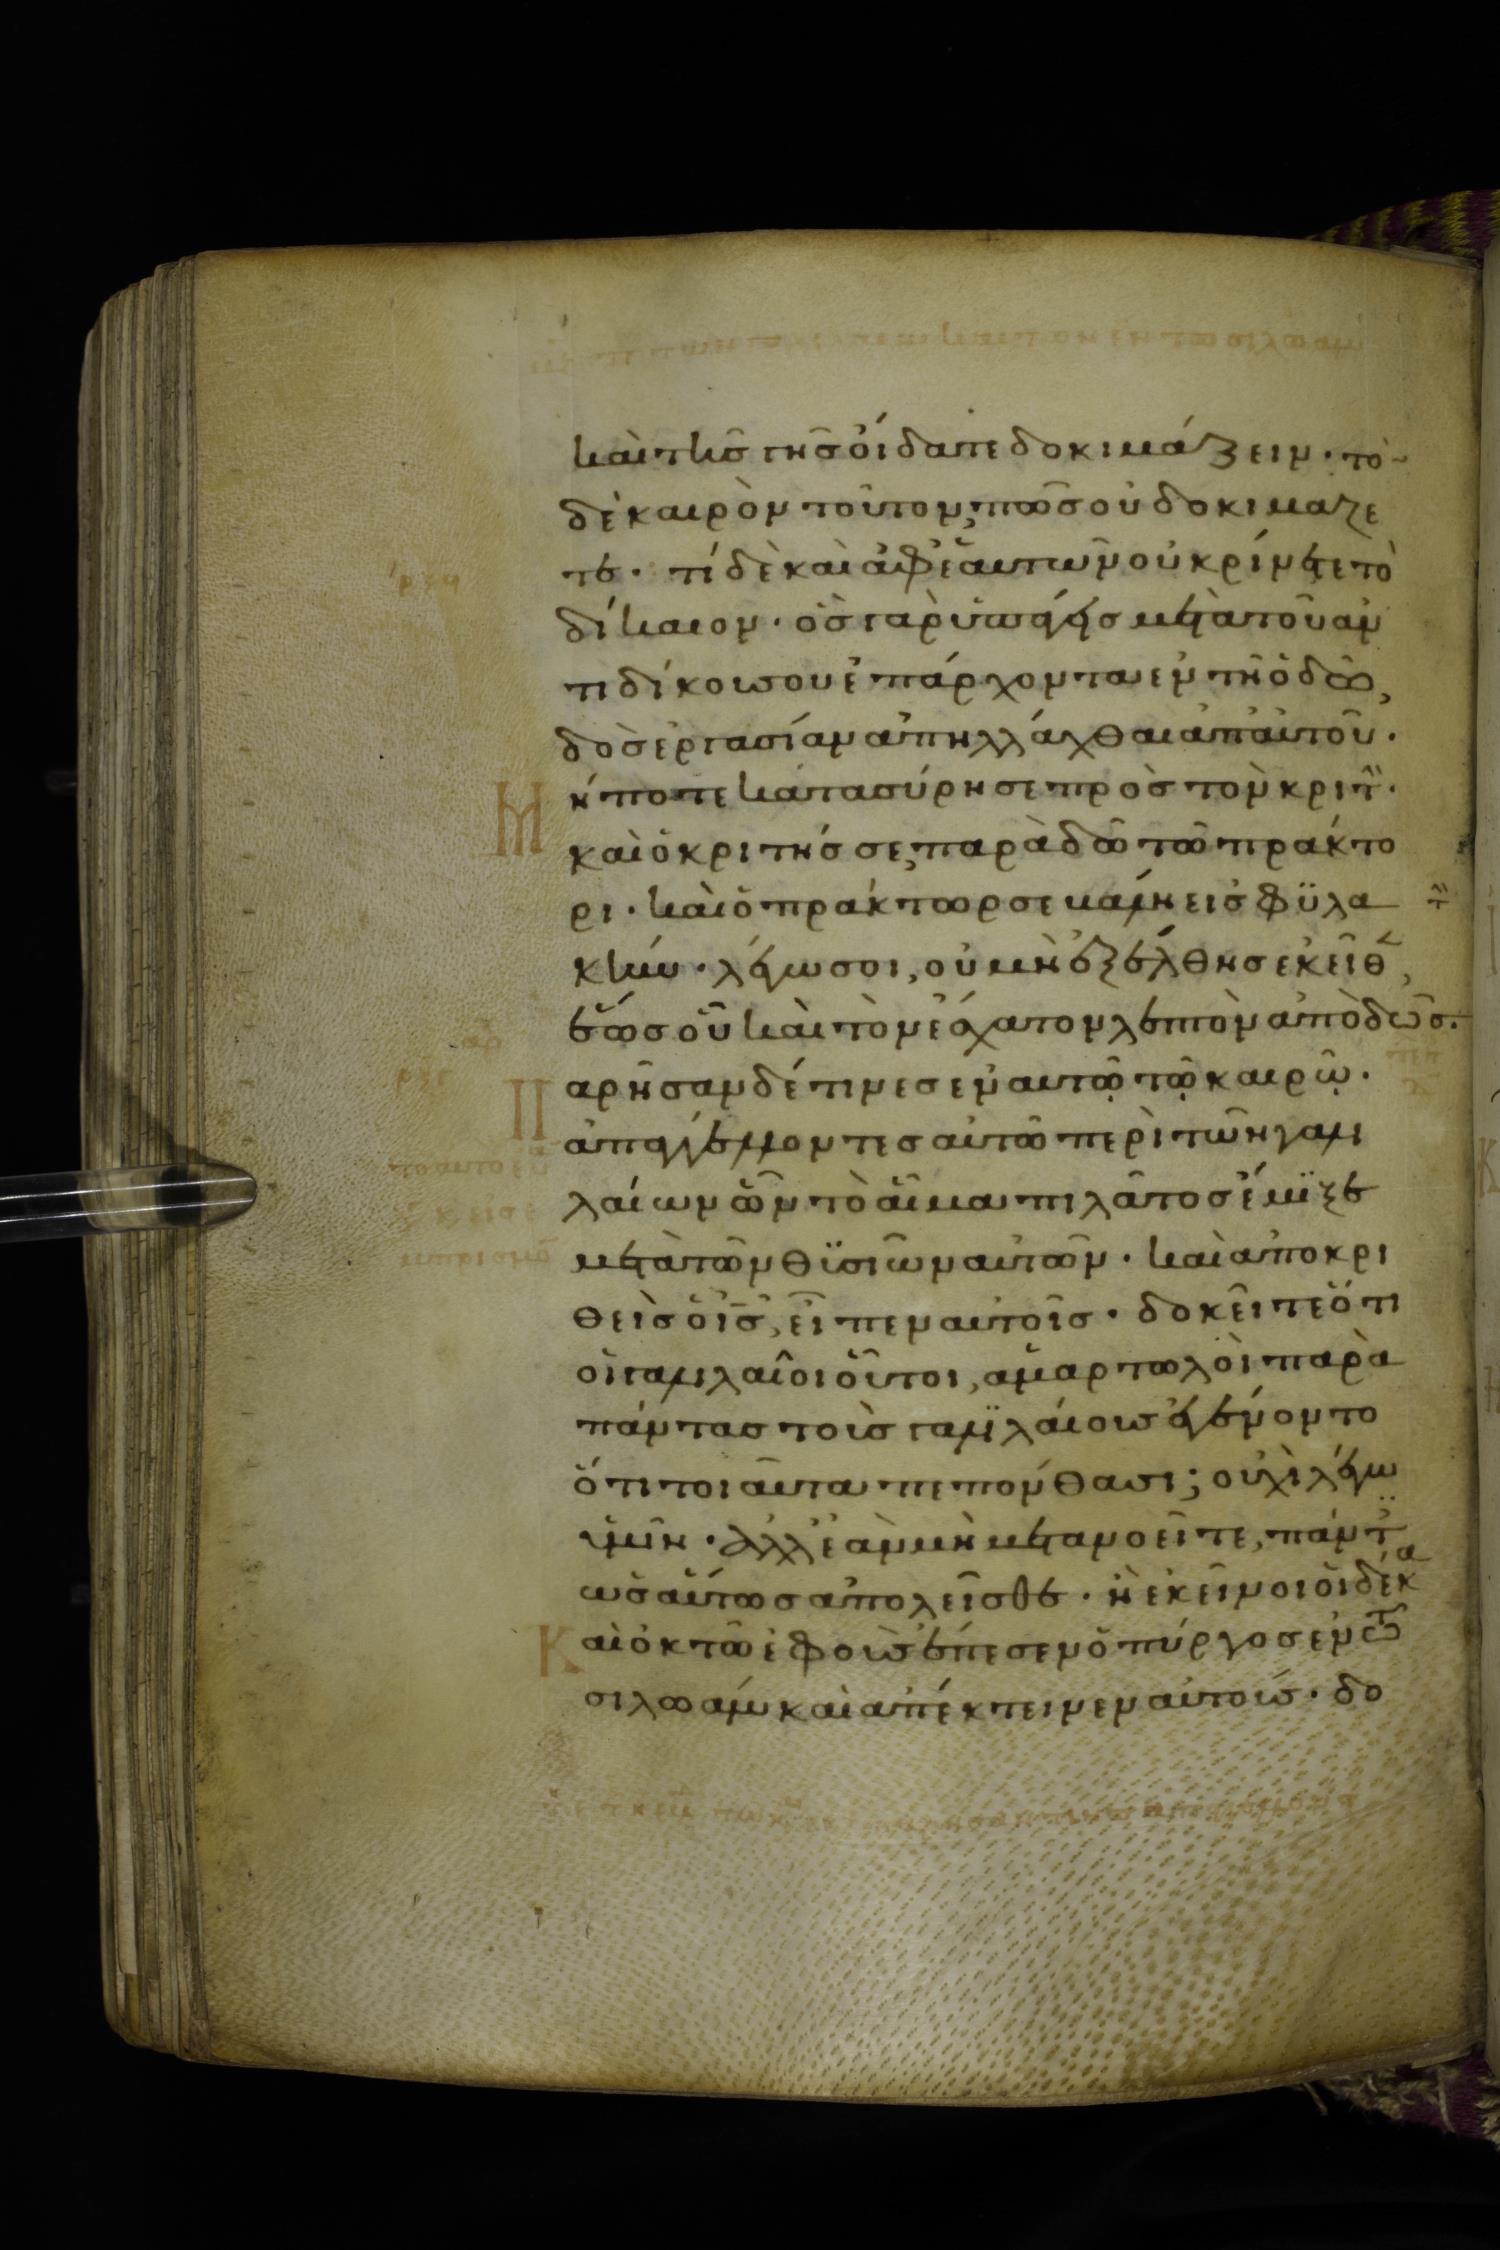 καὶ τῆς γῆς οἴδατε δοκιμάζειν· τὸν
δὲ καιρὸν τοῦτον, πῶς οὐ δοκιμαζε
τε· τί δὲ καὶ ἀφ' ἑαυτῶν οὐ κρίνετε τὸ
δίκαιον· ὡς γὰρ ὑπάγεις μετὰ τοῦ ἀν
τιδίκου σου ἐπ' ἄρχοντα ἐν τῇ ὁδῶ,
δὸς ἐργασίαν ἀπηλλάχθαι ἀπ' αὐτοῦ·
Μήποτε κατασύρη σε πρὸς τὸν κριτὴν·
καὶ ὁ κριτής σε, παραδῶ τῶ πράκτο
ρι· καὶ ὁ πράκτωρ σε βάλη εἰς φϋλα
κήν· λέγω σοι, οὐ μὴ ἐξέλθης ἐκεῖθεν,
ἕως οὗ καὶ τὸ ἔσχατον λεπτὸν ἀποδῶς.
Παρῆσαν δέ τινες ἐν αυτῷ τῷ καιρῷ·
ἀπαγγέλλοντες αὐτῶ περὶ τῶν γαλι
λαίων ὧν τὸ αἷμα πιλᾶτος ἔμϊξε
μετὰ τῶν θϋσιῶν αὐτῶν· καὶ ἀποκρι
θεὶς ὁ ις, εἶπεν αυτοῖς· δοκεῖτε ὅτι
οἱ γαλιλαῖοι οὗτοι, ἁμαρτωλοὶ παρὰ
πάντας τοὺς γαλϊλαίους ἐγένοντο
ὅτι τοιαῦτα πεπόνθασι; οὐχὶ λέγω
ὑμῖν· ἀλλ' ἐὰν μὴ μετανοεῖτε, πάντες
ὡσαύτως ἀπολεῖσθε· ἢ ἐκεῖνοι οἱ δέκα
Καὶ ὀκτὼ ἐφ οὓς ἔπεσεν ὁ πύργος ἐν τῶ
σιλωάμ καὶ ἀπέκτεινεν αὐτούς· δο